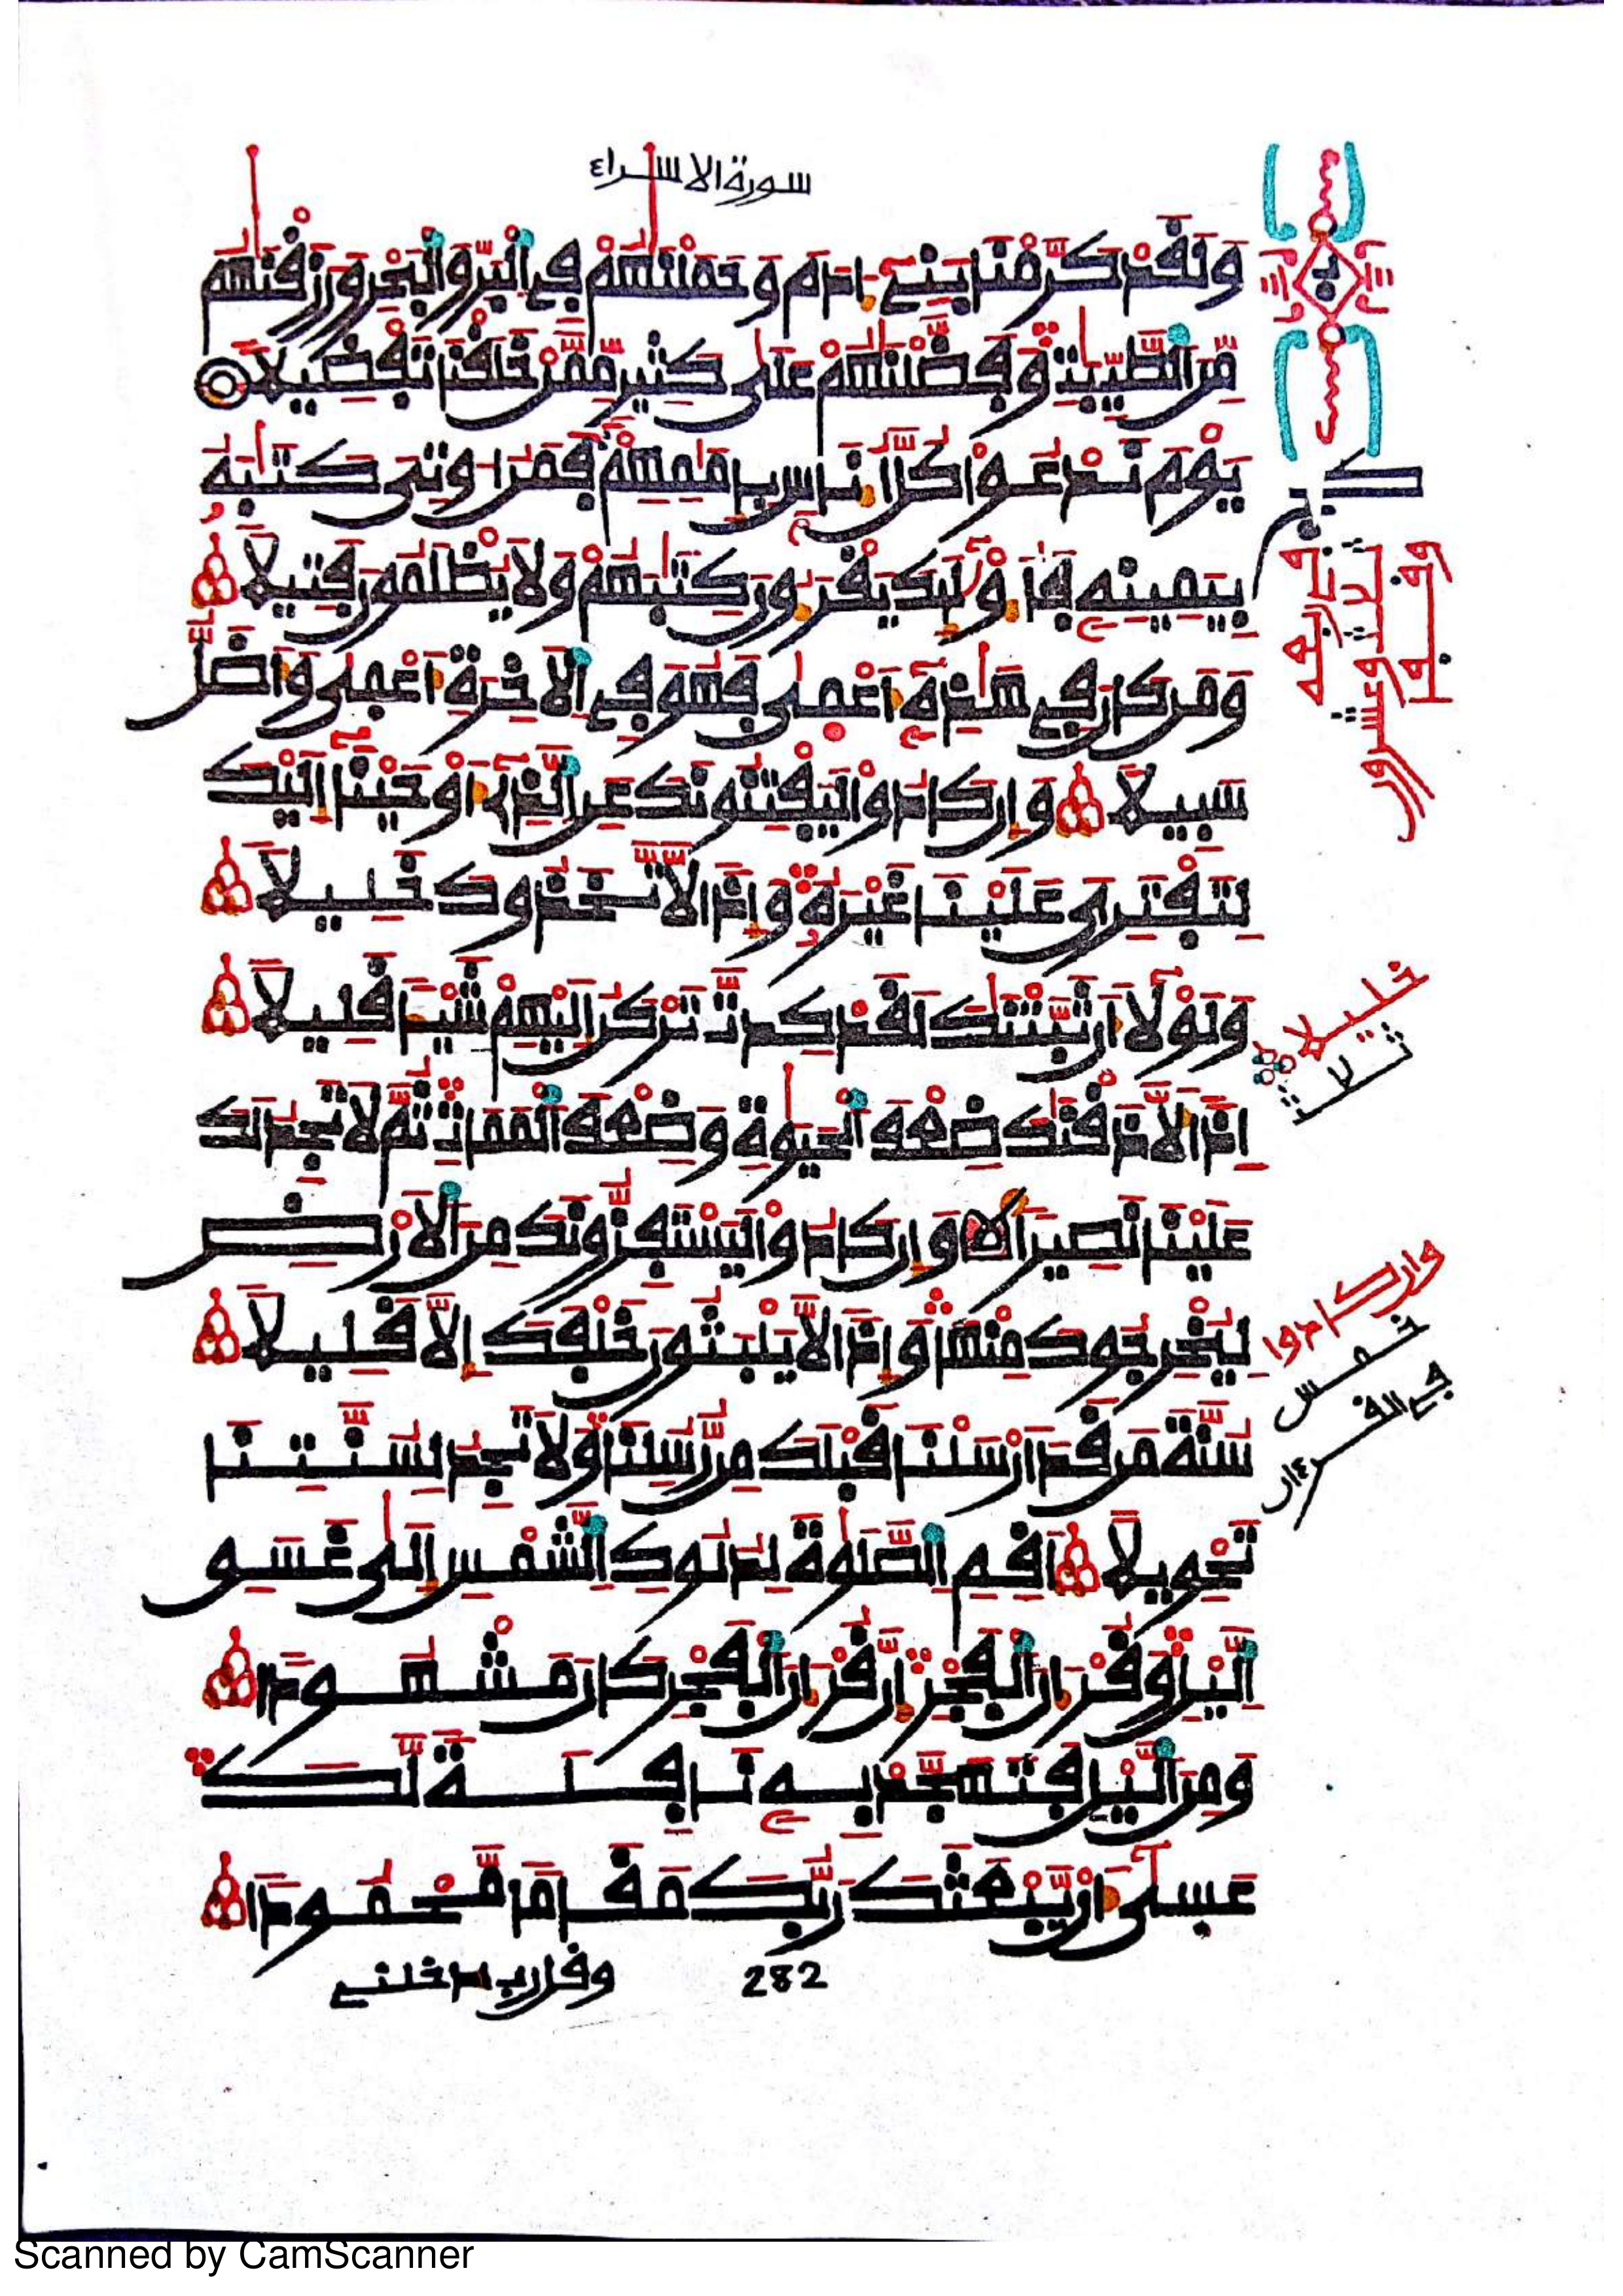 سورة الاسراء
وَلَقَدْ كَرَّمْنَا بَنِےٓ ءَادَمَ وَحَمَلْنَٰهُمْ فِے اِ۬لْبَرِّ وَالْبَحْرِ وَرَزَقْنَٰهُم
مِّنَ اَ۬لطَّيِّبَٰتِ وَفَضَّلْنَٰهُمْ عَلَىٰ كَثِيرٍ مِّمَّنْ خَلَقْنَا تَفْضِيلاً
يَوْمَ نَدْعُواْ كُلَّ أُنَاسٍ بِإِمَٰمِهِمْ فَمَنُ ا۟وتِيَ كِتَٰبَهُۥ
بِيَمِينِهِۦ فَأُوْلَٰٓئِكَ يَقْرَءُونَ كِتَٰبَهُمْ وَلَا يُظْلَمُونَ فَتِيلاً
وَمَن كَانَ فِي هَٰذِهِۦٓ أَعْمَىٰ فَهُوَ فِے اِ۬لَاخِرَةِ أَعْمَىٰ وَأَضَلُّ
سَبِيلاً وَإِن كَادُواْ لَيَفْتِنُونَكَ عَنِ اِ۬لذِےٓ أَوْحَيْنَآ إِلَيْكَ
لِتَفْتَرِيَ عَلَيْنَا غَيْرَهُۥ وَإِذاً لَّاتَّخَذُوكَ خَلِيلاً
وَلَوْلَآ أَن ثَبَّتْنَٰكَ لَقَدْ كِدتَّ تَرْكَنُ إِلَيْهِمْ شَيْـٔاً قَلِيلاً
إِذاً لَّأَذَقْنَٰكَ ضِعْفَ اَ۬لْحَيَوٰةِ وَضِعْفَ اَ۬لْمَمَاتِ ثُمَّ لَا تَجِدُ لَكَ
عَلَيْنَا نَصِيراً وَإِن كَادُواْ لَيَسْتَفِزُّونَكَ مِنَ اَ۬لَارْضِ
لِيُخْرِجُوكَ مِنْهَا وَإِذاً لَّا يَلْبَثُونَ خَلْفَكَ إِلَّا قَلِيلاً
سُنَّةَ مَن قَدَ اَرْسَلْنَا قَبْلَكَ مِن رُّسُلِنَا وَلَا تَجِدُ لِسُنَّتِنَا
تَحْوِيلاً أَقِمِ اِ۬لصَّلَوٰةَ لِدُلُوكِ اِ۬لشَّمْسِ إِلَىٰ غَسَقِ
اِ۬ليْلِ وَقُرْءَانَ اَ۬لْفَجْرِ إِنَّ قُرْءَانَ اَ۬لْفَجْرِ كَانَ مَشْهُوداً
وَمِنَ اَ۬ليْلِ فَتَهَجَّدْ بِهِۦ نَافِلَةً لَّكَ
عَسَىٰٓ أَنْ يَّبْعَثَكَ رَبُّكَ مَقَاماً مَّحْمُوداً
وقل رب ادخلنے
282
خليلا
ثلاثة
وان كادوا
خمس
في القرءان
Scanned by CamScanner